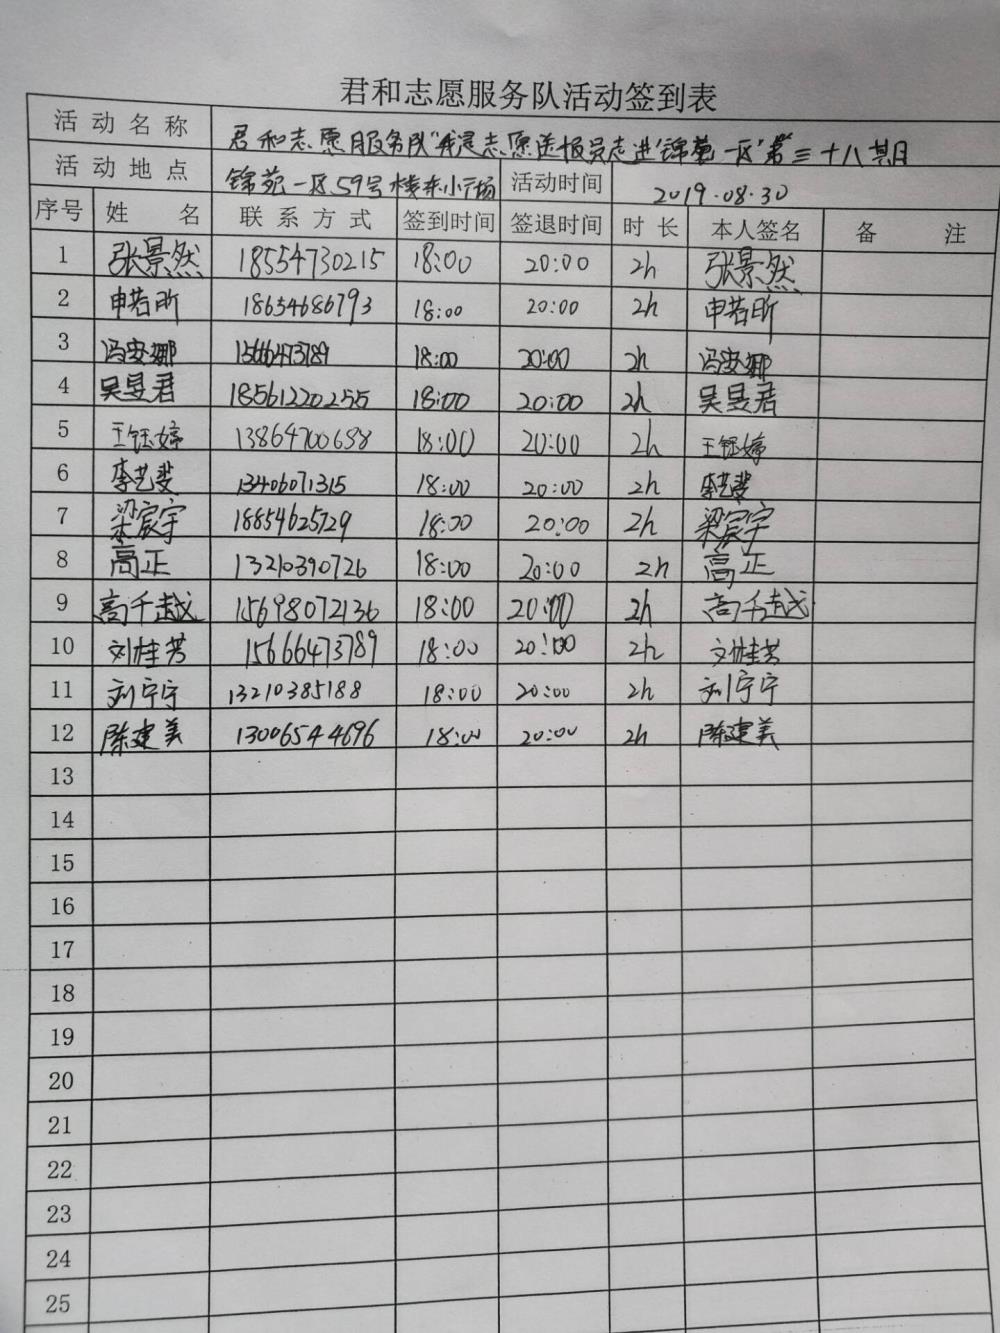 君和志愿服务队活动签到表
活动名称 君和志愿服务队"我是志愿送报员走进锦苑一区"第三十八期
活动地点 锦苑一区59号楼东小广场 活动时间 2019.08.30
序号 姓名 联系方式 签到时间 签退时间 时长 本人签名 备注
1 张景然 18554730215 18:00 20:00 2h 张景然
2 申若昕 18654686793 18:00 20:00 2h 申若昕
3 冯安娜 15666473789 18:00 20:00 2h 冯安娜
4 吴昱君 18561220255 18:00 20:00 2h 吴昱君
5 王钰婷 13864700698 18:00 20:00 2h 王钰婷
6 李艺斐 13406071315 18:00 20:00 2h 李艺斐
7 梁宸宇 18854625729 18:00 20:00 2h 梁宸宇
8 高正 13210390726 18:00 20:00 2h 高正
9 高千越 15698072136 18:00 20:00 2h 高千越
10 刘桂芳 15666473789 18:00 20:00 2h 刘桂芳
11 刘宁宁 13210385188 18:00 20:00 2h 刘宁宁
12 陈建美 13006544696 18:00 20:00 2h 陈建美
13
14
15
16
17
18
19
20
21
22
23
24
25